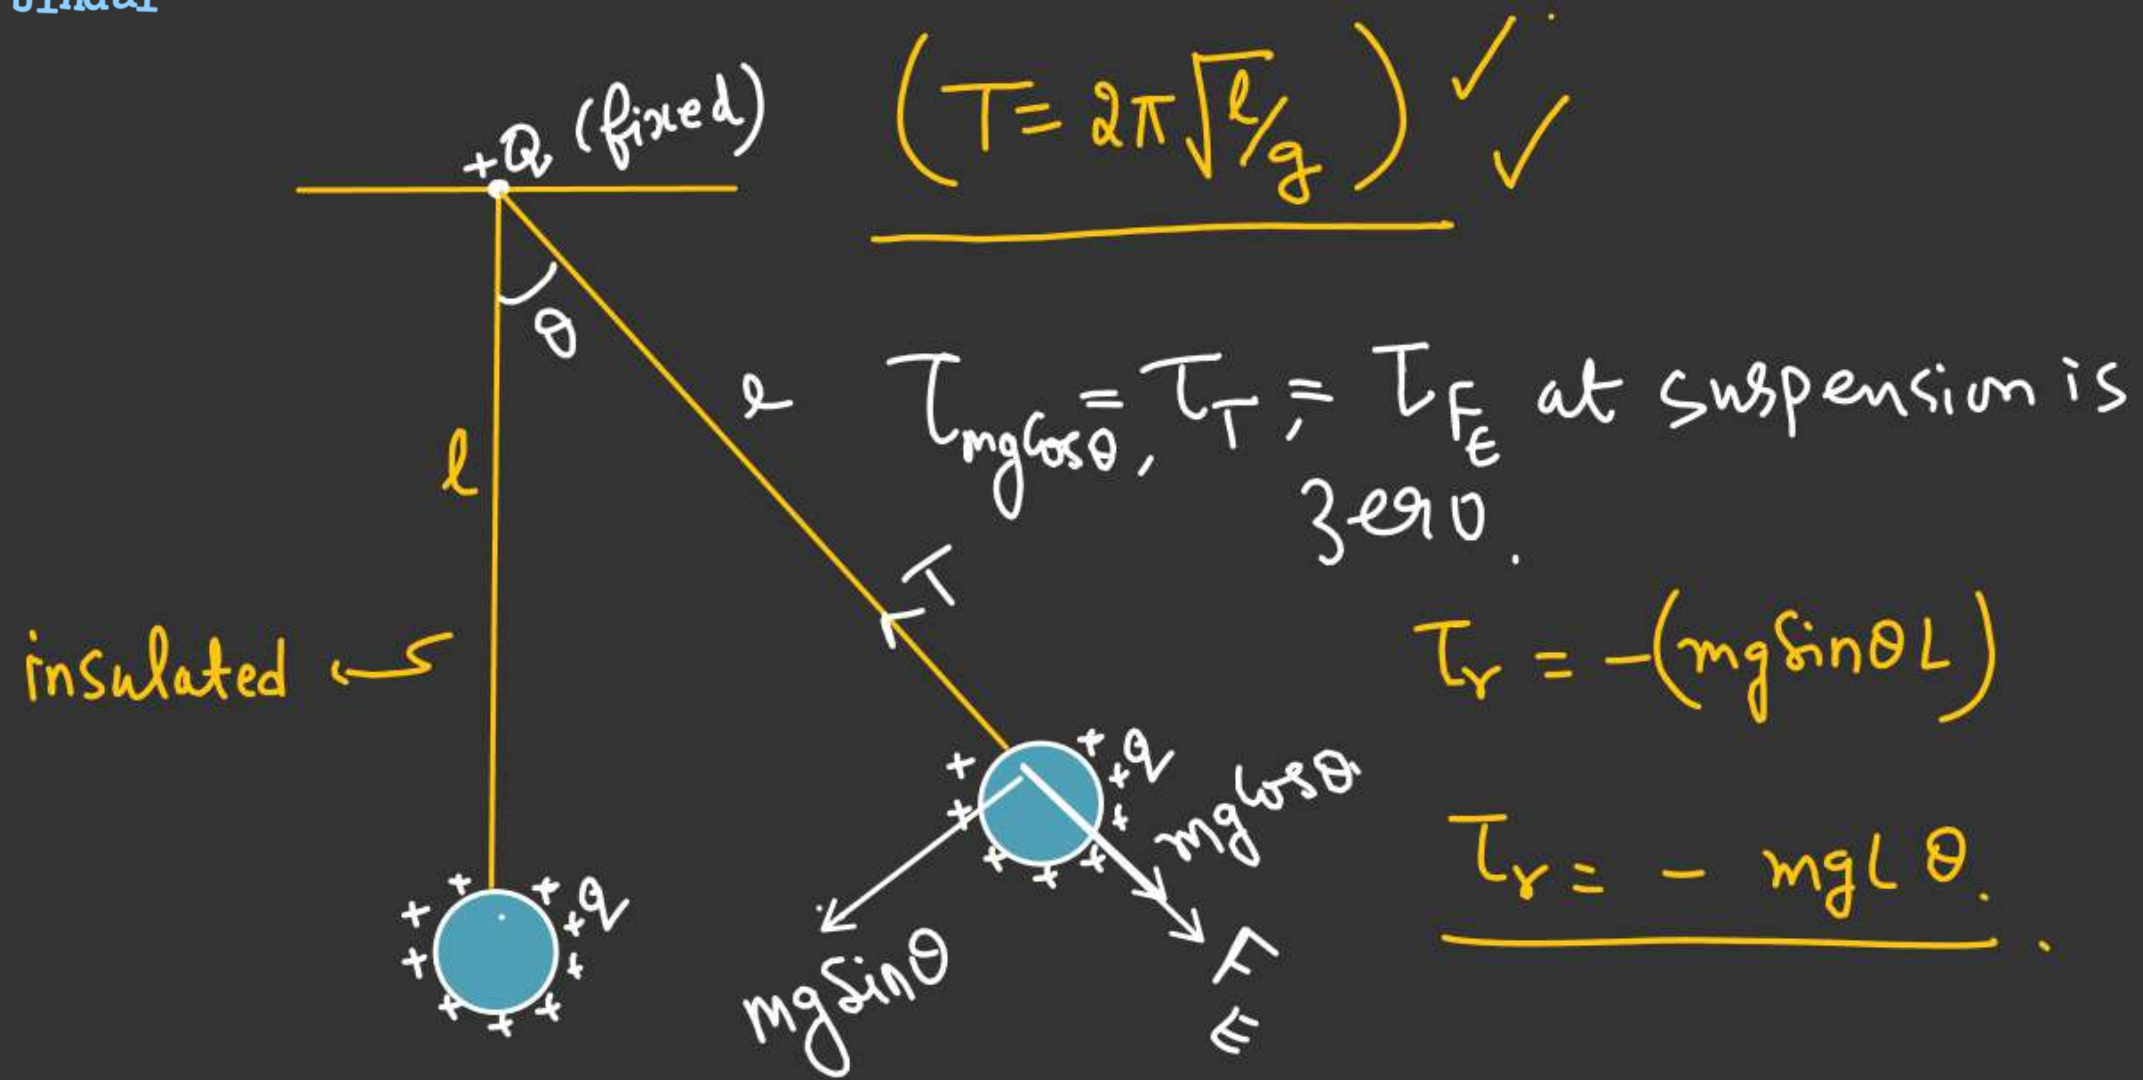 +Q (fixed)
(T = 2π√l/g) ✓ ✓
θ
l
l
τ_mgcosθ, = τ_T, = τ_F_E at suspension is
zero.
T
insulated
τ_r = -(mg sinθ L)
+Q
mg cosθ
τ_r = - mgL θ.
Q
mg sinθ
F_E